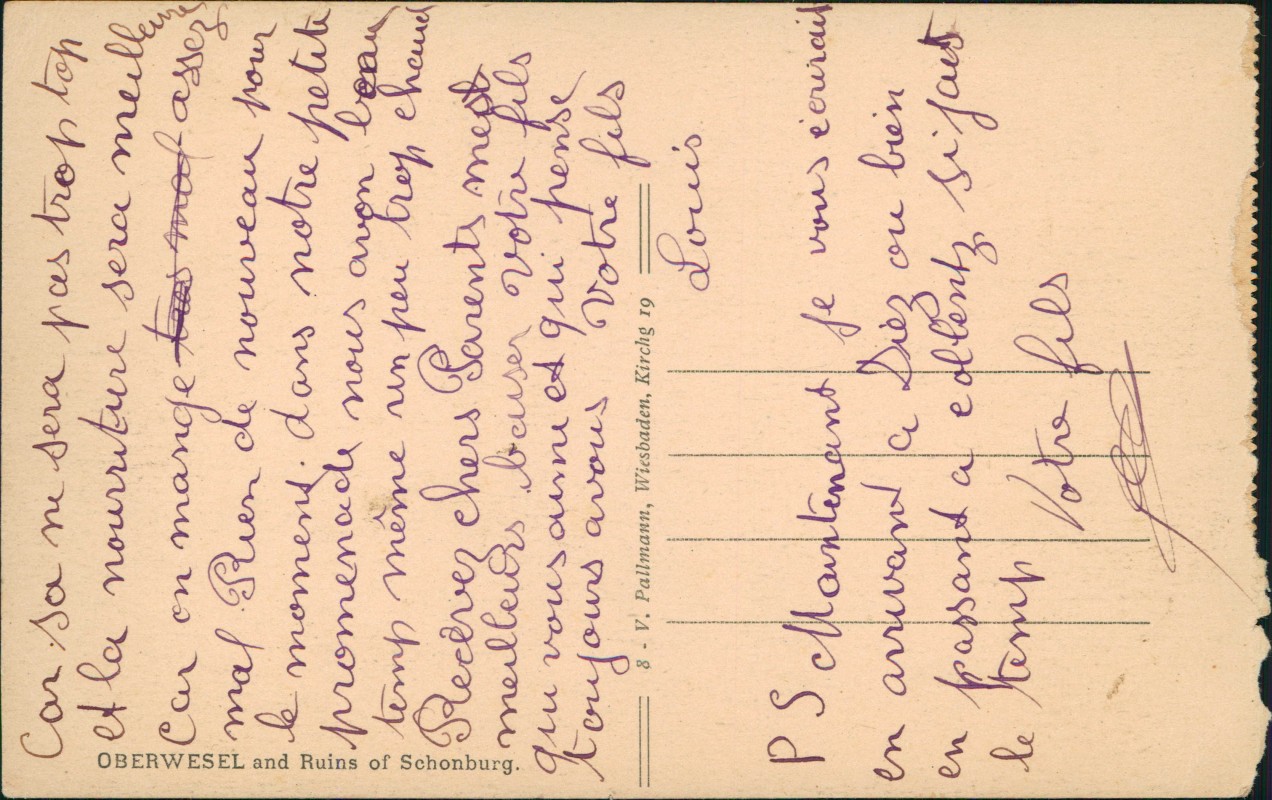 Car sa ne sera pas trop top
et la nourriture sera meilleure
Car on mange tres mal assez
mal Rien de nouveau pour
le moment. dans notre petite
promenade nous avon beau
temp même un peu trop chaud
Recever chers Parents mest
meilleurs baiser votre fils
qu vous aime et qui pense
toujours a vous Votre fils
Louis
OBERWESEL and Ruins of Schonburg.
8 - V. Pallmann, Wiesbaden, Kirchg 19
P S Maintenant je vous écuirait
en arrivent a Diez ou bien
en passant a coblentz si jaus
le temp Votre fils